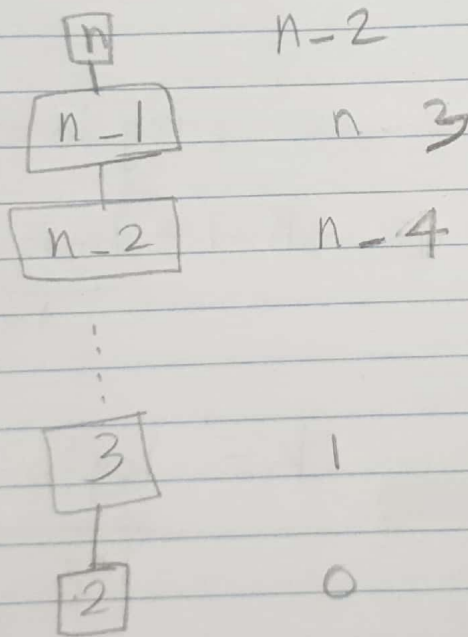 n n-2
n-1 n 3
n-2 n-4
3 1
2 0